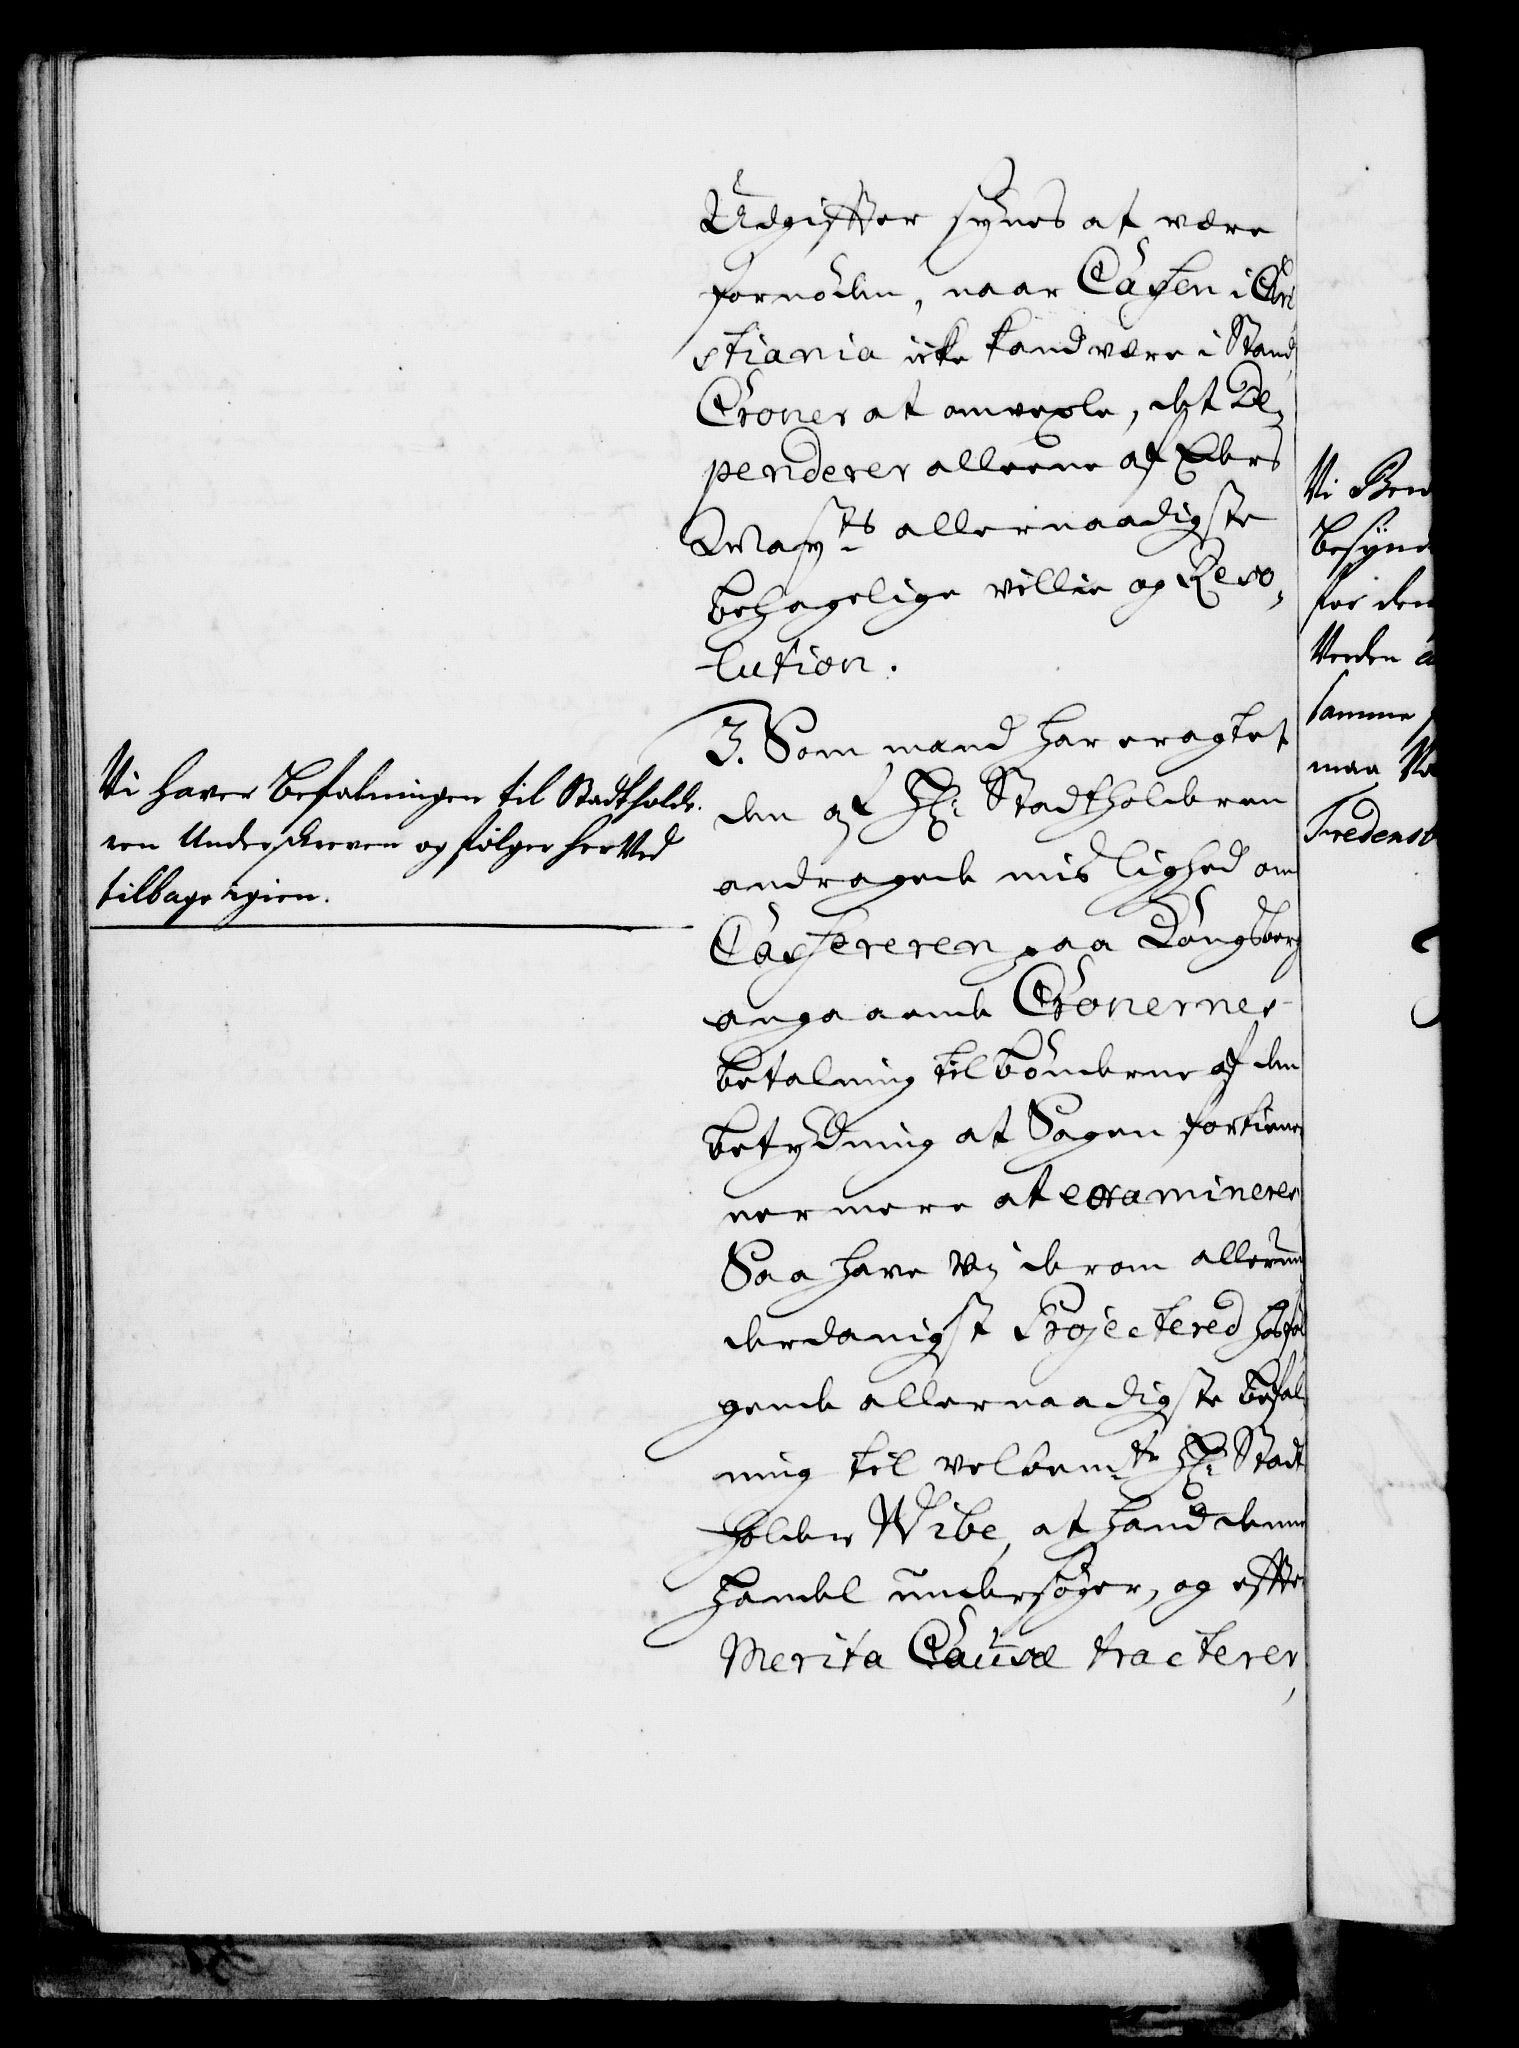 Udgiffter synes at være
fornöden, naar Cassen i Chri
stiania icke kand være i Stand
Croner at omvexle, det De,
penderer alleene af Eders
Mayts allernaadigste
behagelige villie og Reso,
lution.
3. Som mand har eragtet
den af Hr: Stadtholderen
andragende mislighed om
Cassereren paa Kongsberg
angaaende Cronernes
betaling til bönderne af den
betydning at Sagen fortiener
nermere at examineres
Saa have vi derom allerun
derdanigst Projectered hosföl
gende allernaadigste befal
ning til velbemte Hr: Stadt
holder Wibe, at hand denne
handel undersöger, og effter
Merita Causæ tracterer,
Vi haver Befalningen til Stadtholde-
ren Underskreven og fölger her Ved
tilbage igien.
Vi
Besynd
for den
Verden
samme
maa
Fredensb